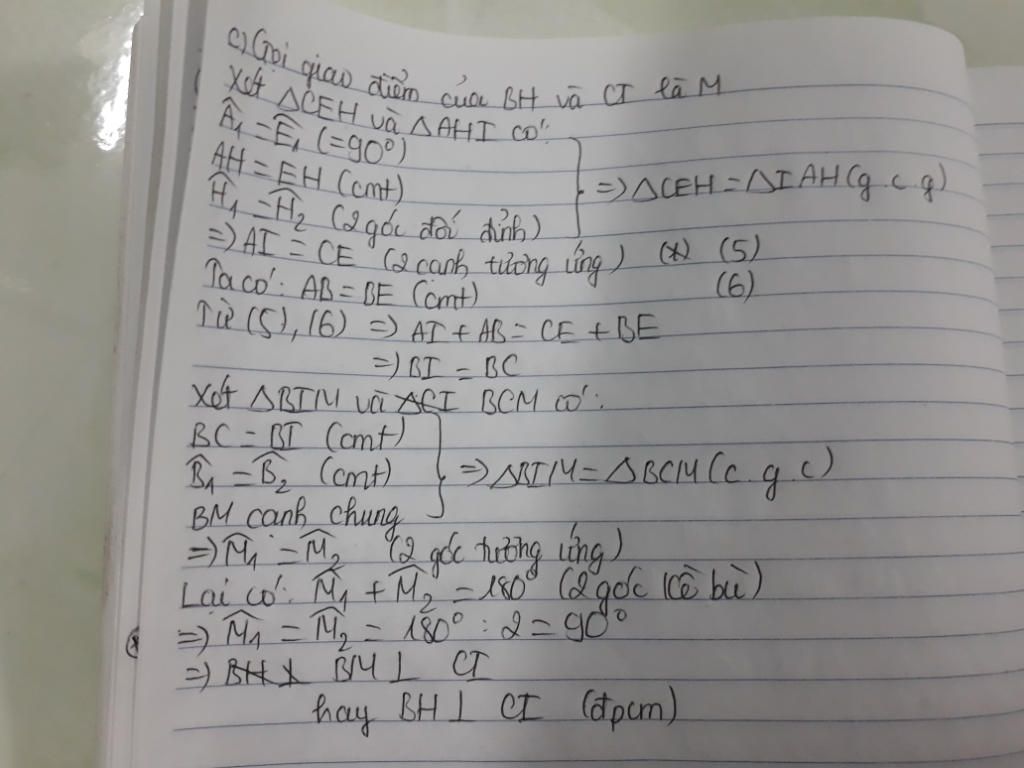 c) Gọi giao điểm của BH và CI là M
Xét △CEH và △AHI có:
Â₁ = Ê₁ (=90°)
AH = EH (cmt) => △CEH = △IAH (g.c.g)
Ĥ₁ = Ĥ₂ (2 góc đối đỉnh)
=> AI = CE (2 cạnh tương ứng) (*) (5)
Ta có: AB = BE (cmt) (6)
Từ (5), (6) => AI + AB = CE + BE
=> BI = BC
Xét △BIM và △CI BCM có:
BC = BI (cmt)
B̂₁ = B̂₂ (cmt) => △BIM = △BCM (c.g.c)
BM cạnh chung
=> M̂₁ = M̂₂ (2 góc tương ứng)
Lại có: M̂₁ + M̂₂ = 180° (2 góc kề bù)
=> M̂₁ = M̂₂ = 180° : 2 = 90°
=> BH ⊥ BM ⊥ CI
hay BH ⊥ CI (đpcm)